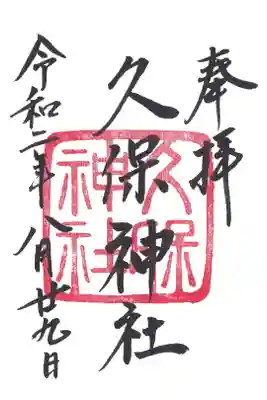 奉拝
久保神社
久保神社
令和二年八月廿九日